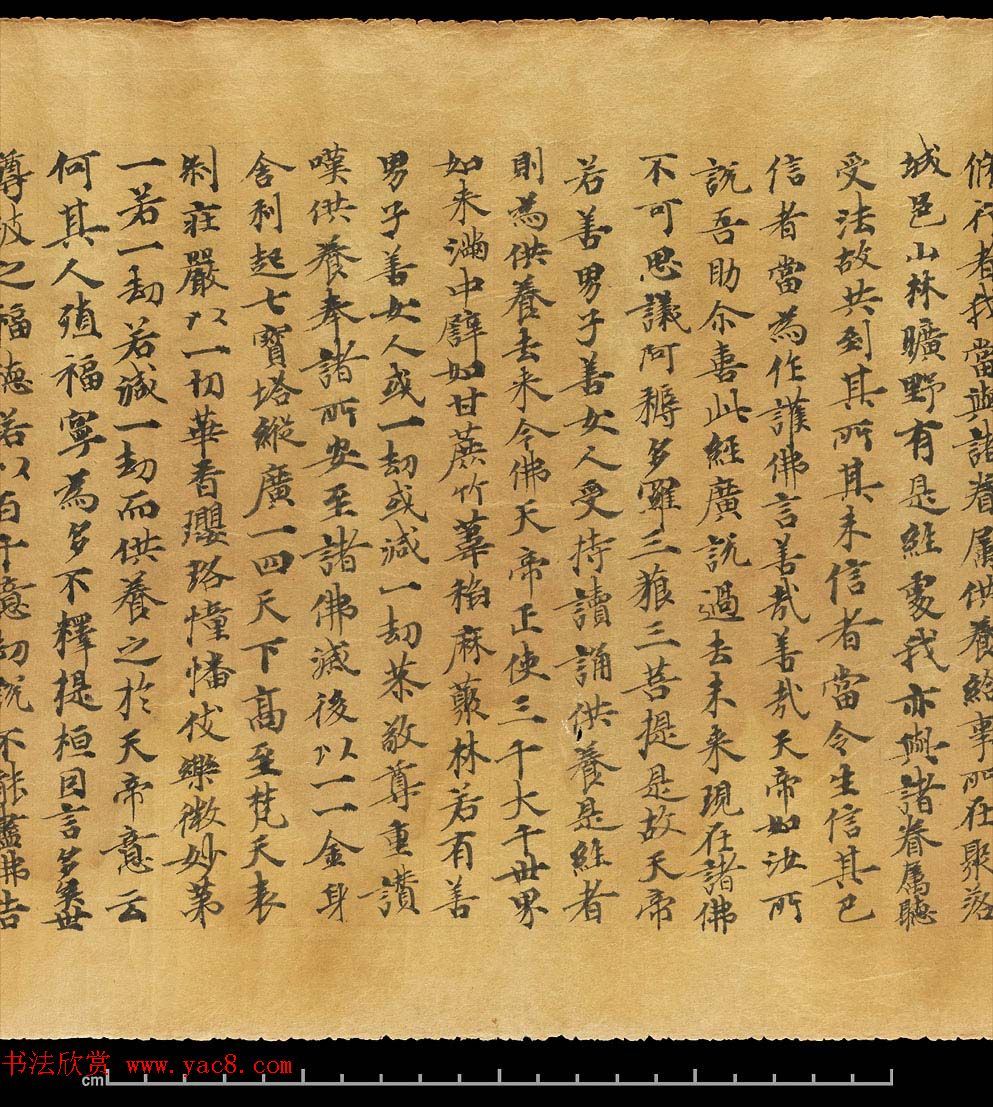 脩行者我當與諸眷属供養給事所在聚落
城邑山林曠野有是經處我亦與諸眷属聽
受法故共到其所其未信者當令生信其已
信者當為作護佛言善哉善哉天帝如汝所
說吾助尒喜此經廣說過去未来現在諸佛
不可思議阿耨多羅三藐三菩提是故天帝
若善男子善女人受持讀誦供養是經者
則為供養去来今佛天帝正使三千大千世界
如来滿中譬如甘蔗竹葦稻麻藂林若有善
男子善女人或一劫或減一劫恭敬尊重讚
嘆供養奉諸所安至諸佛滅後以一一金身
舍利起七寶塔縱廣一四天下高至梵天表
刹莊嚴以一切華香瓔珞幢幡伎樂微妙第
一若一劫若減一劫而供養之於天帝意云
何其人殖福寧為多不釋提桓因言多矣世
尊彼之福德若以百千億劫說不能盡佛告
书法欣赏 www.yac8.com
cm